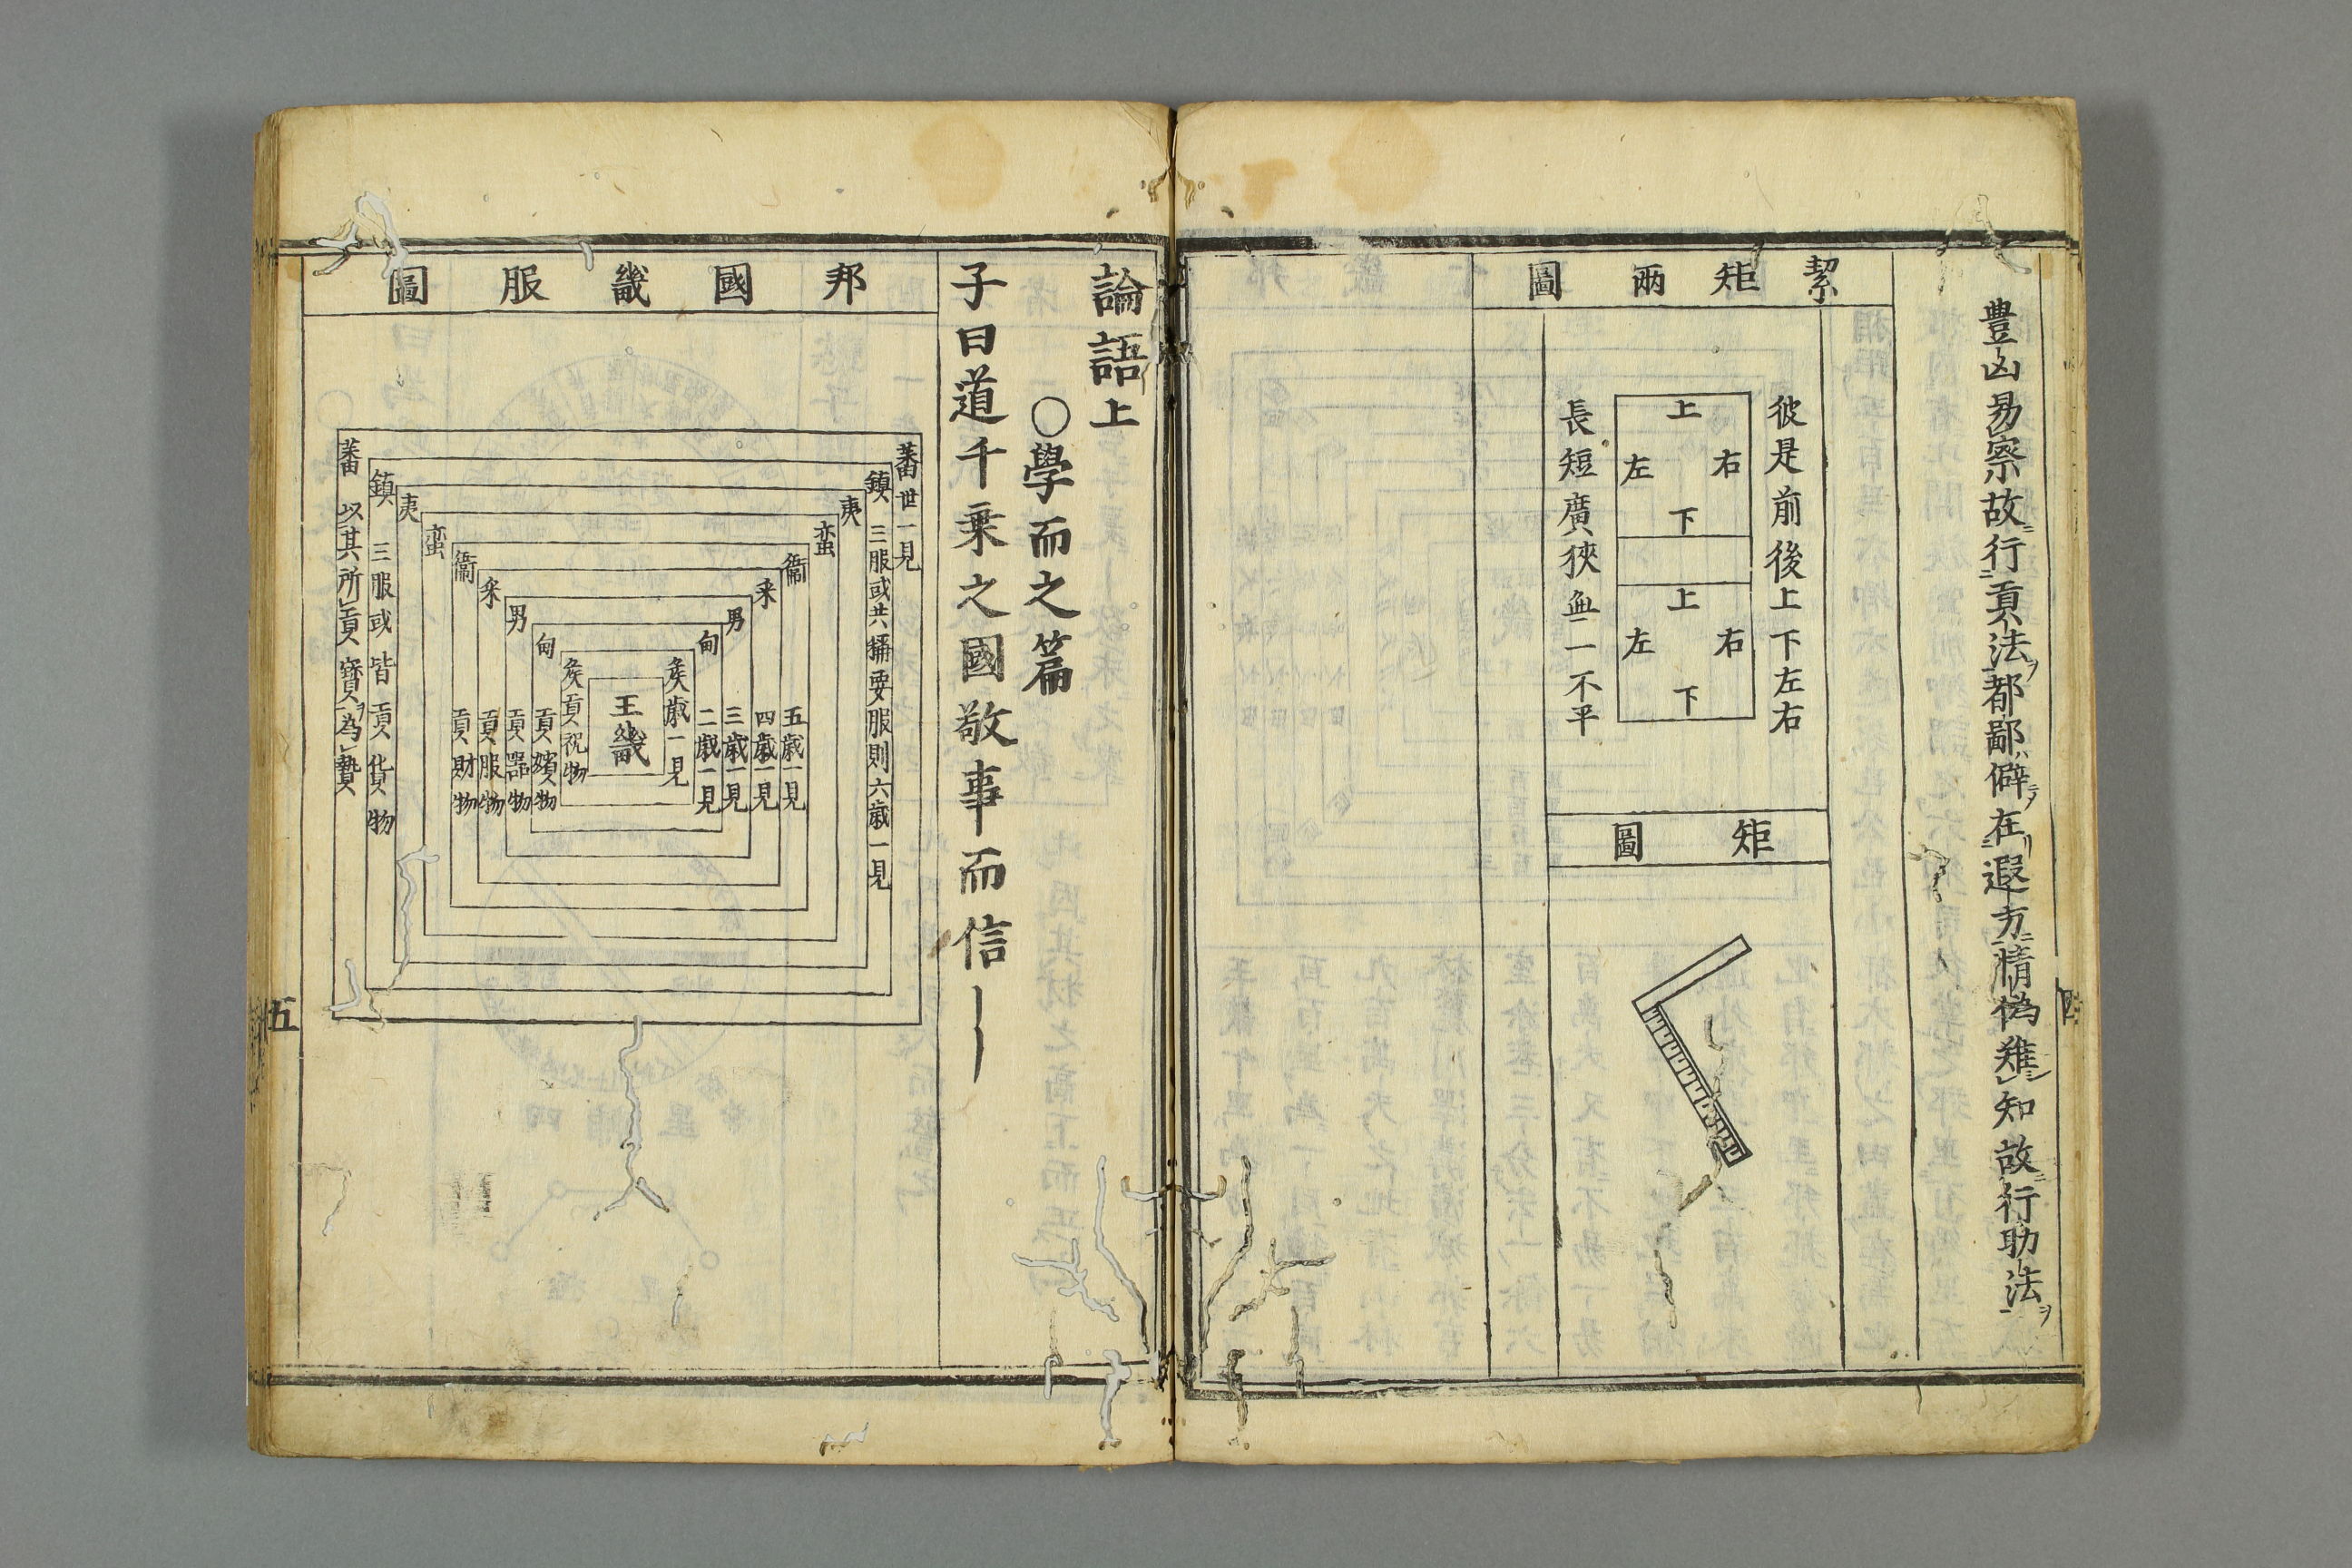 豊凶易察故行貢法都鄙僻在遐方情偽難知故行助法
絜矩兩圖
彼是前後上下左右
上
右
左
下
上
右
左
下
長短廣狹無一不平
矩圖
四
論語上
○學而之篇
子曰道千乗之國敬事而信
邦國畿服圖
蕃世一見
鎮三服或共稱要服則六歳一見
夷
蛮
衞五歳一見
采四歳一見
男三歳一見
甸二歳一見
矦歳一見
王畿
矦貢祝物
甸貢嬪物
男貢噐物
采貢服物
衞貢財物
蛮
夷
鎮三服或皆貢貨物
蕃以其所貢寳為贄
五